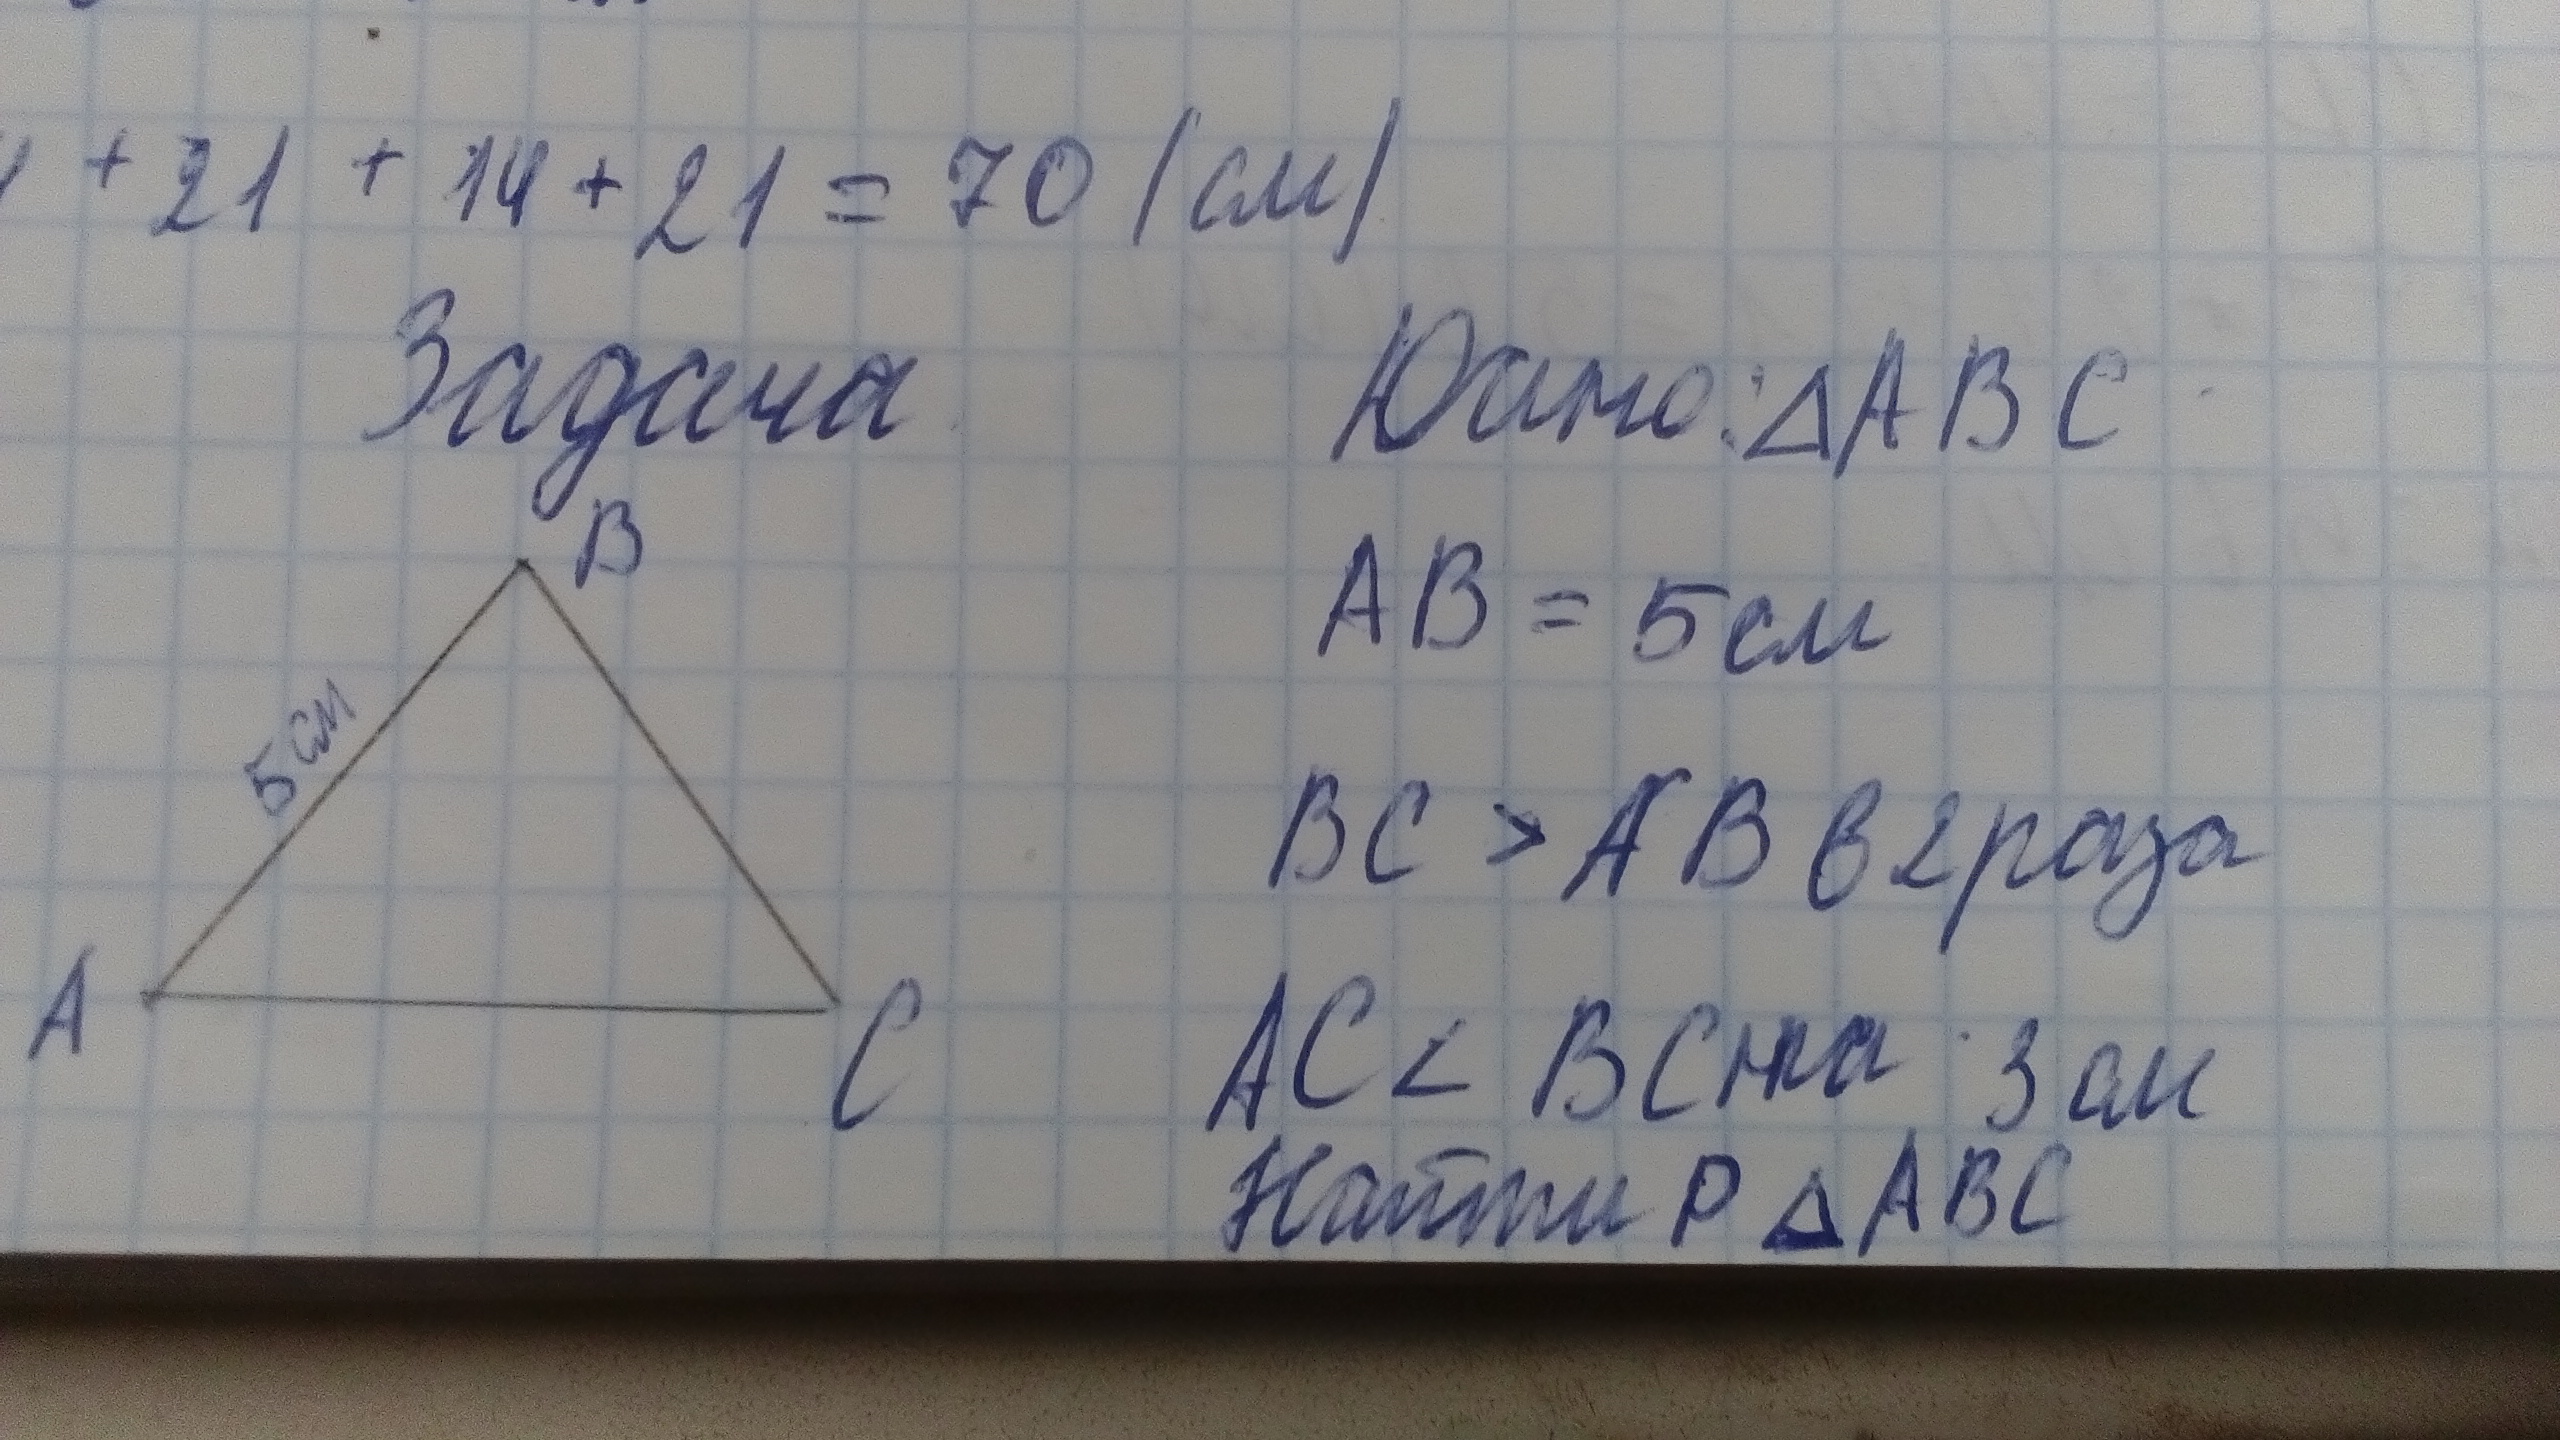 + 21 + 14 + 21 = 70 (см)
Задача
Дано: △ABC
B
AB = 5 см
5 см
BC > AB в 2 раза
A
C
AC < BC на 3 см
Найти P △ ABC